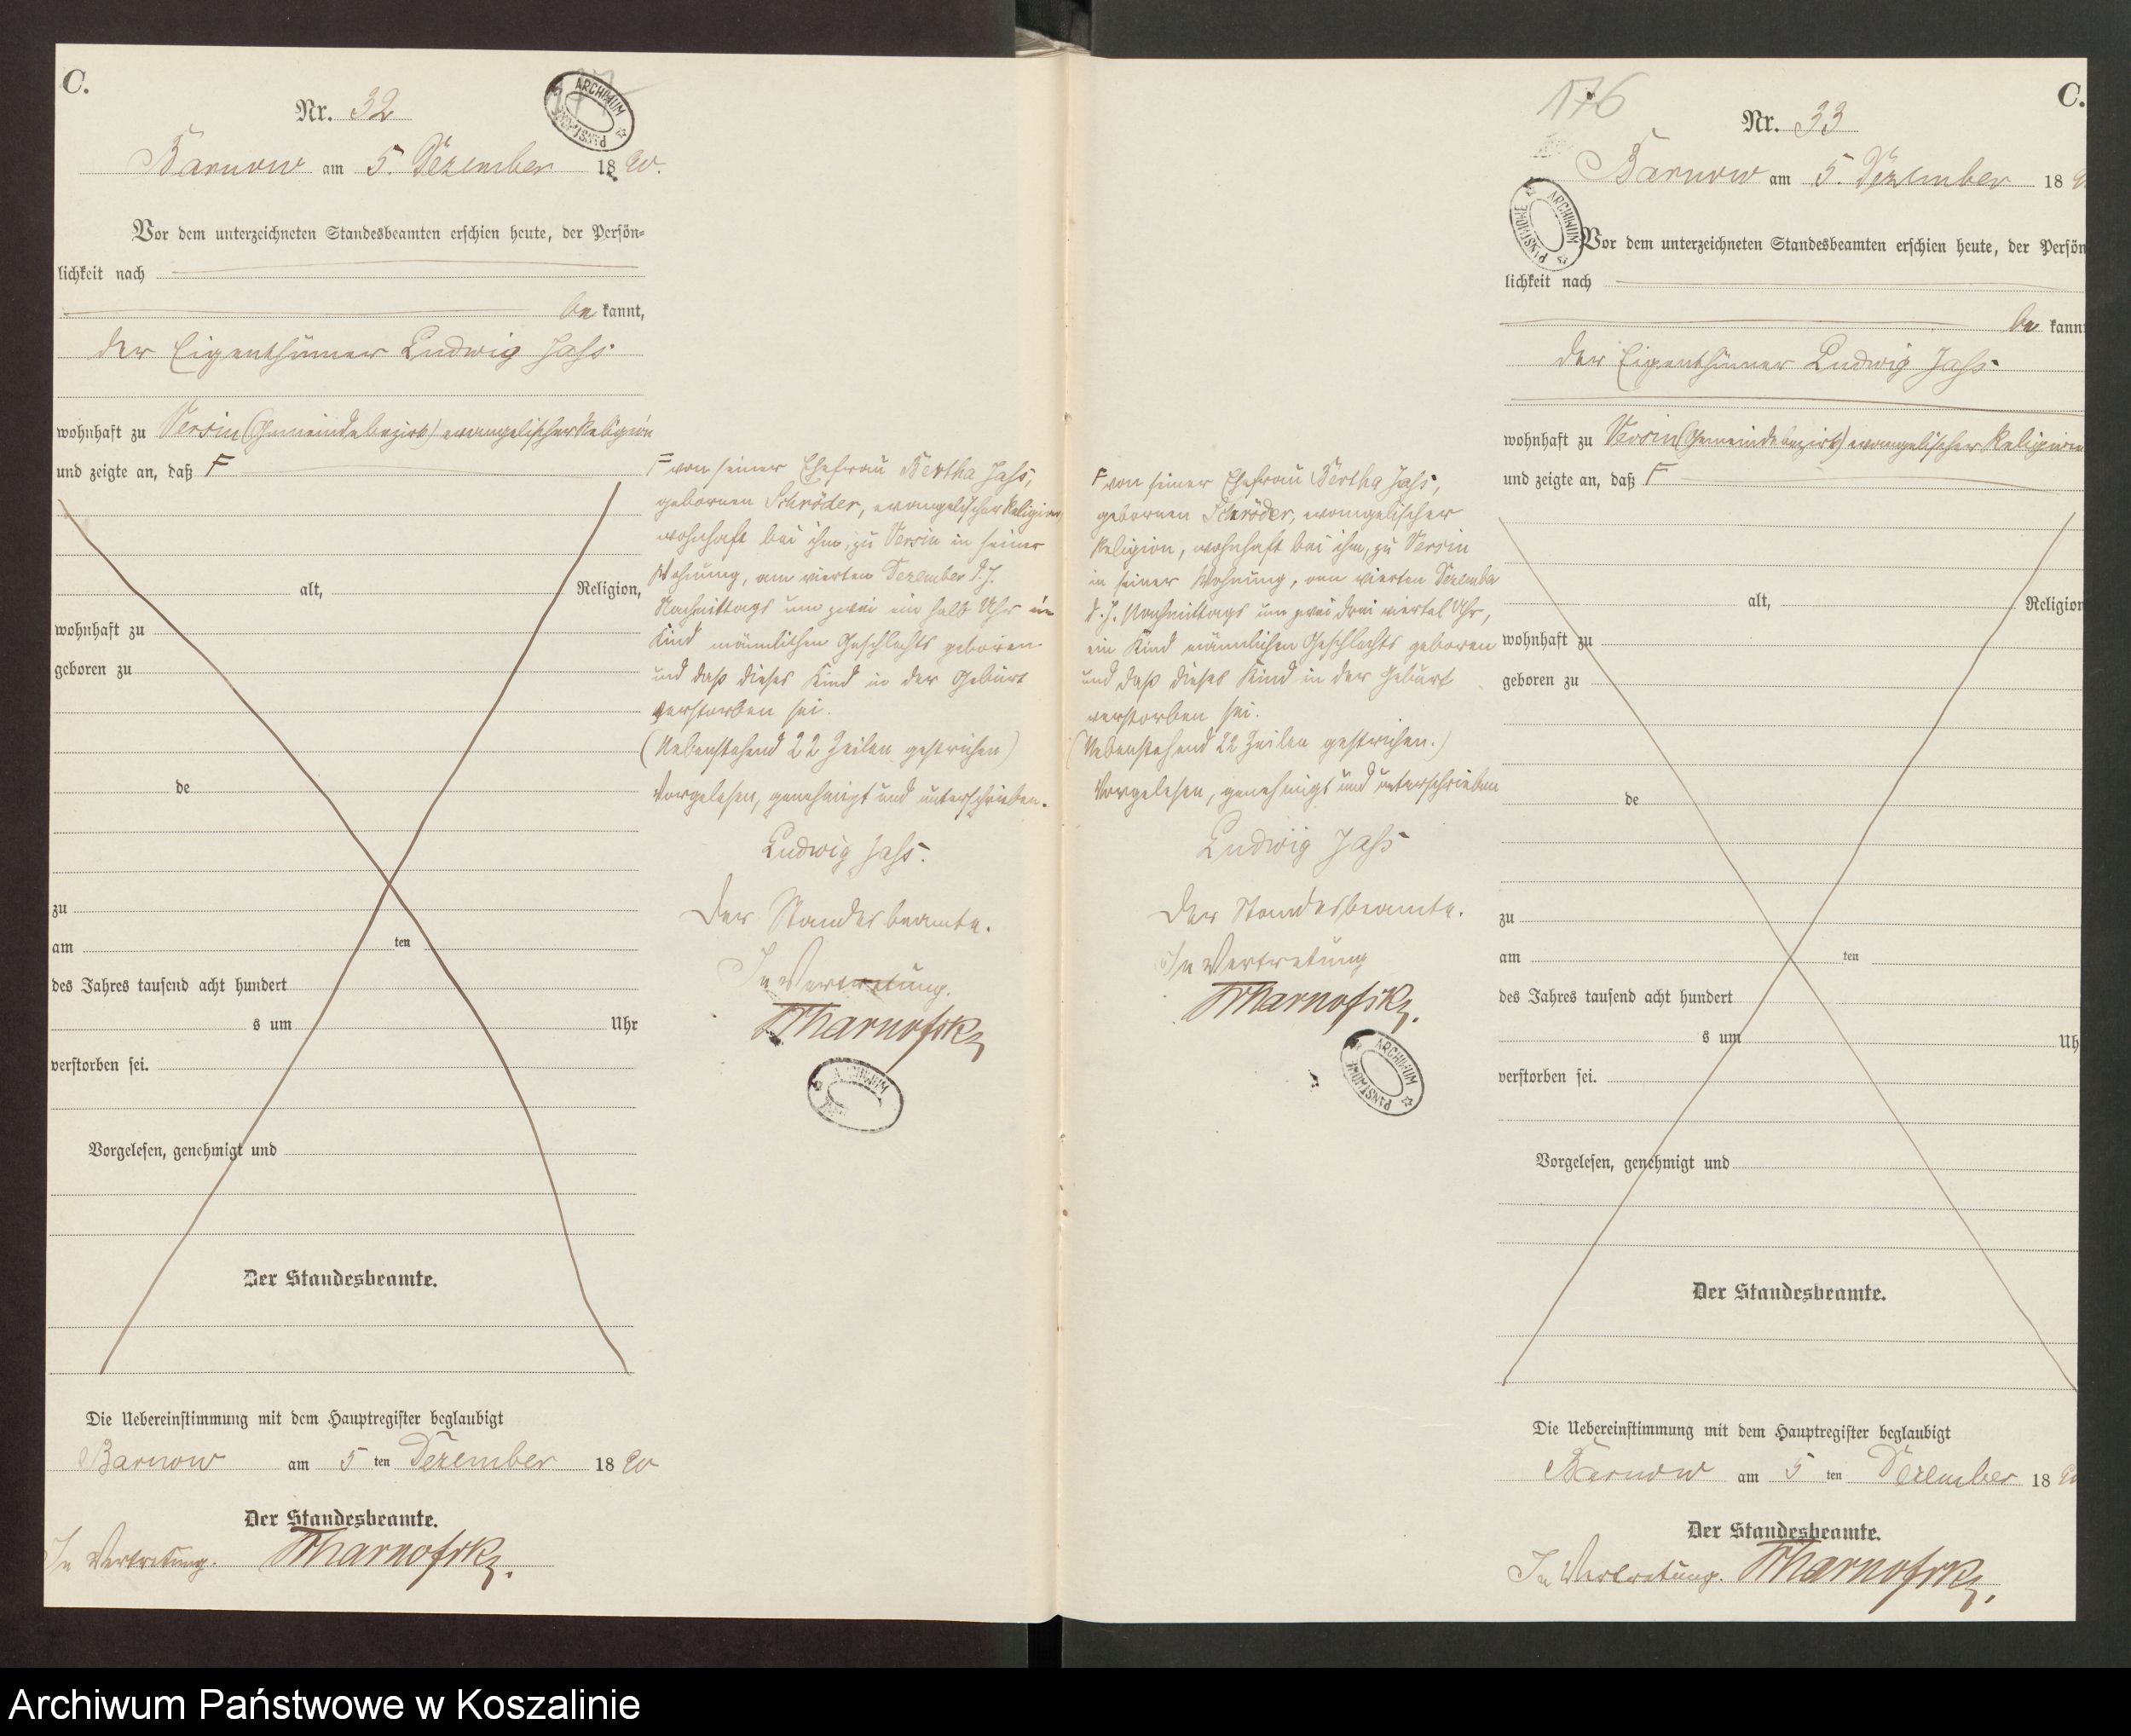 C.
Nr. 32
Barnow am 5. Dezember 1890.
Vor dem unterzeichneten Standesbeamten erschien heute, der Persön-
lichkeit nach
be kannt,
der Eigenthümer Ludwig Jahs
wohnhaft zu Versin (Gemeindebezirk) evangelischer Religion
und zeigte an, daß F
alt, Religion,
wohnhaft zu
geboren zu
de
zu
am ten
des Jahres tausend acht hundert
s um Uhr
verstorben sei.
Vorgelesen, genehmigt und
Der Standesbeamte.
Die Uebereinstimmung mit dem Hauptregister beglaubigt
Barnow am 5 ten Dezember 1890
Der Standesbeamte.
In Vertretung.
F von seiner Ehefrau Bertha Jahs,
gebornen Schröder, evangelischer Religion,
wohnhaft bei ihm, zu Versin in seiner
Wohnung, am vierten Dezember d. J.
Nachmittags um zwei ein halb Uhr ein
Kind männlichen Geschlechts geboren
und daß dieses Kind in der Geburt
verstorben sei.
(Nebenstehend 22 Zeilen gestrichen)
Vorgelesen, genehmigt und unterschrieben.
Ludwig Jahs.
Der Standesbeamte.
In Vertretung.
ARCHIWUM PAŃSTWOWE
176
C.
Nr. 33
Barnow am 5. Dezember 18
Vor dem unterzeichneten Standesbeamten erschien heute, der Persön
lichkeit nach
be kann
der Eigenthümer Ludwig Jahs
wohnhaft zu Versin (Gemeindebezirk) evangelischer Religion
und zeigte an, daß F
alt, Religion
wohnhaft zu
geboren zu
de
zu
am ten
des Jahres tausend acht hundert
s um Uh
verstorben sei.
Vorgelesen, genehmigt und
Der Standesbeamte.
Die Uebereinstimmung mit dem Hauptregister beglaubigt
Barnow am 5 ten Dezember 18
Der Standesbeamte.
In Vertretung.
F von seiner Ehefrau Bertha Jahs,
gebornen Schröder, evangelischer
Religion, wohnhaft bei ihm, zu Versin
in seiner Wohnung, am vierten Dezember
d. J. Nachmittags um zwei drei viertel Uhr,
ein Kind männlichen Geschlechts geboren
und daß dieses Kind in der Geburt
verstorben sei.
(Nebenstehend 22 Zeilen gestrichen.)
Vorgelesen, genehmigt und unterschrieben
Ludwig Jahs
Der Standesbeamte.
In Vertretung
ARCHIWUM PAŃSTWOWE
Archiwum Państwowe w Koszalinie